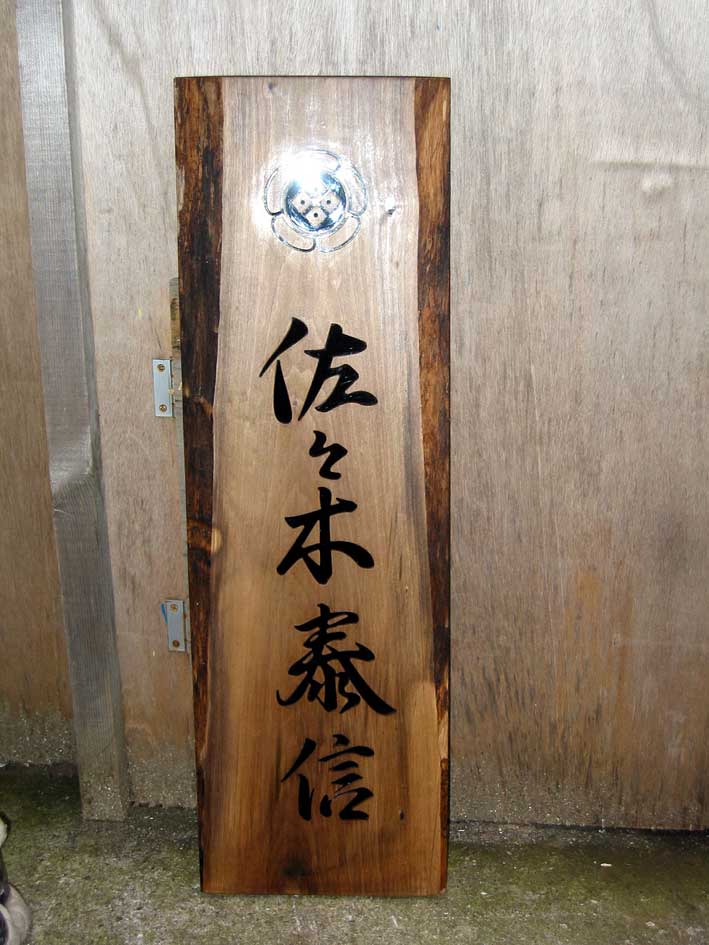 佐々木泰信